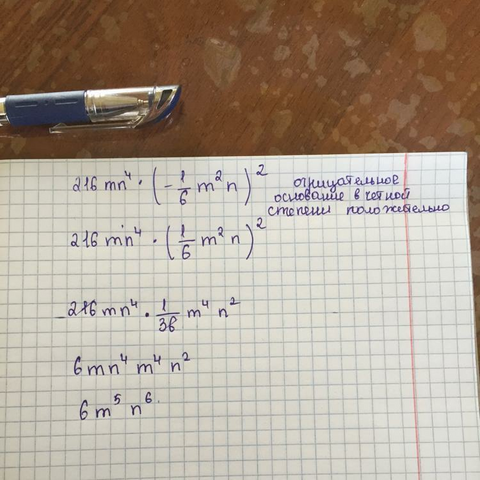 216 mn⁴ · (-1/6 m² n)²
отрицательное
основание в четной
степени положительно
216 mn⁴ · (1/6 m² n)²
216 mn⁴ · 1/36 m⁴ n²
6 mn⁴ m⁴ n²
6 m⁵ n⁶